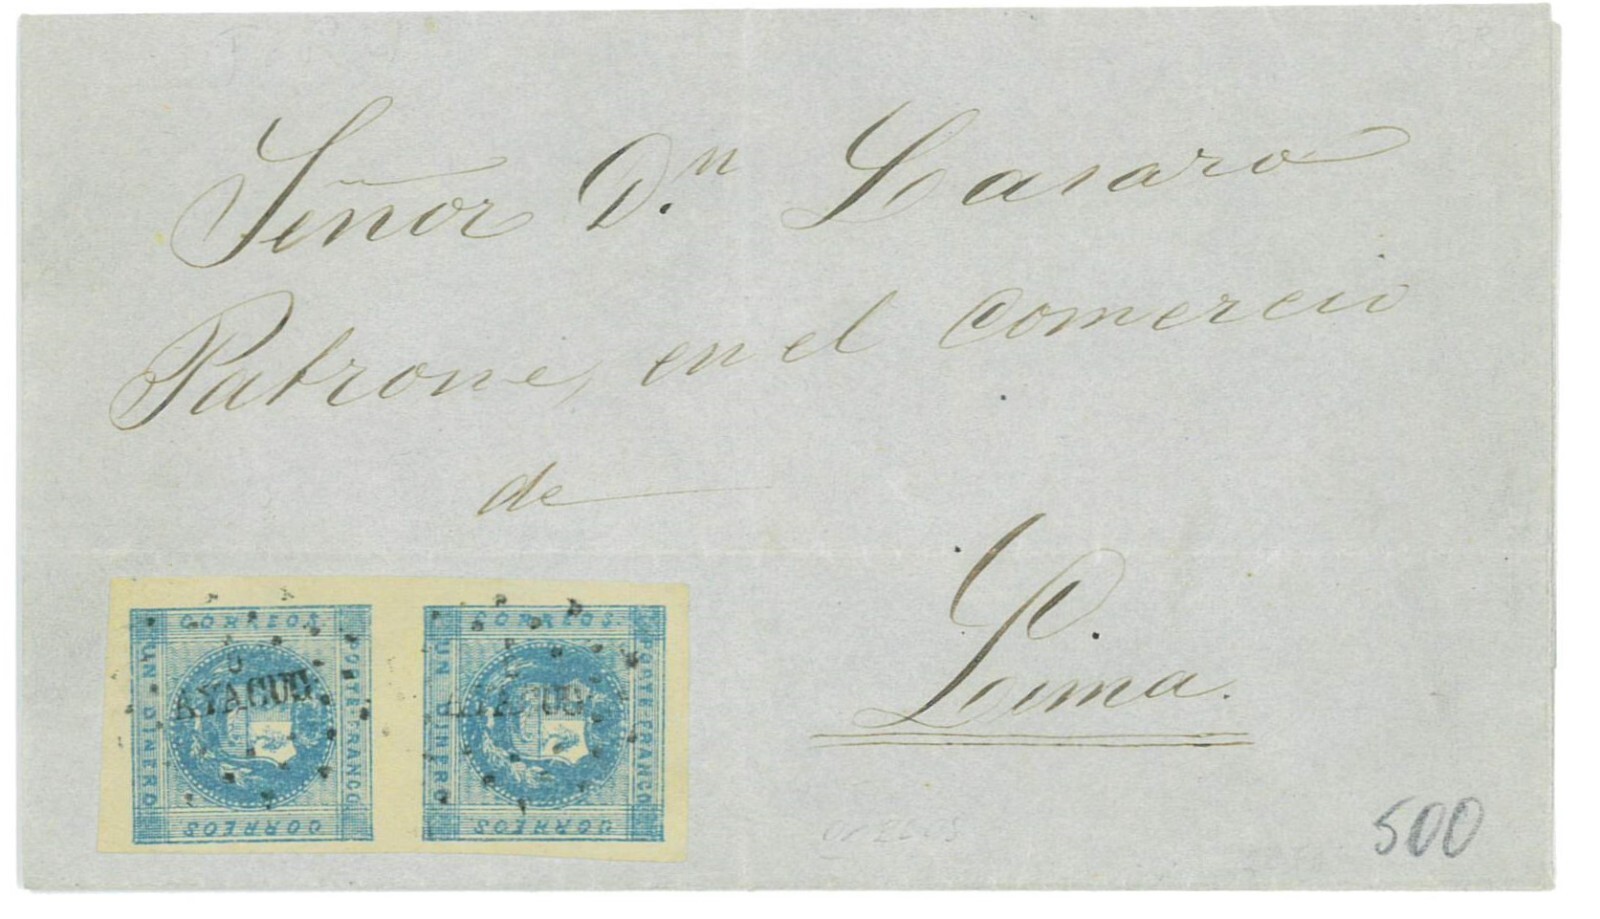 Señor Dn. Lasaro
Patrone, en el Comercio
de
Lima.
CORREOS.
UN DINERO
PORTE FRANCO
CORREOS
AYACUC
CORREOS.
UN DINERO
PORTE FRANCO
CORREOS
500